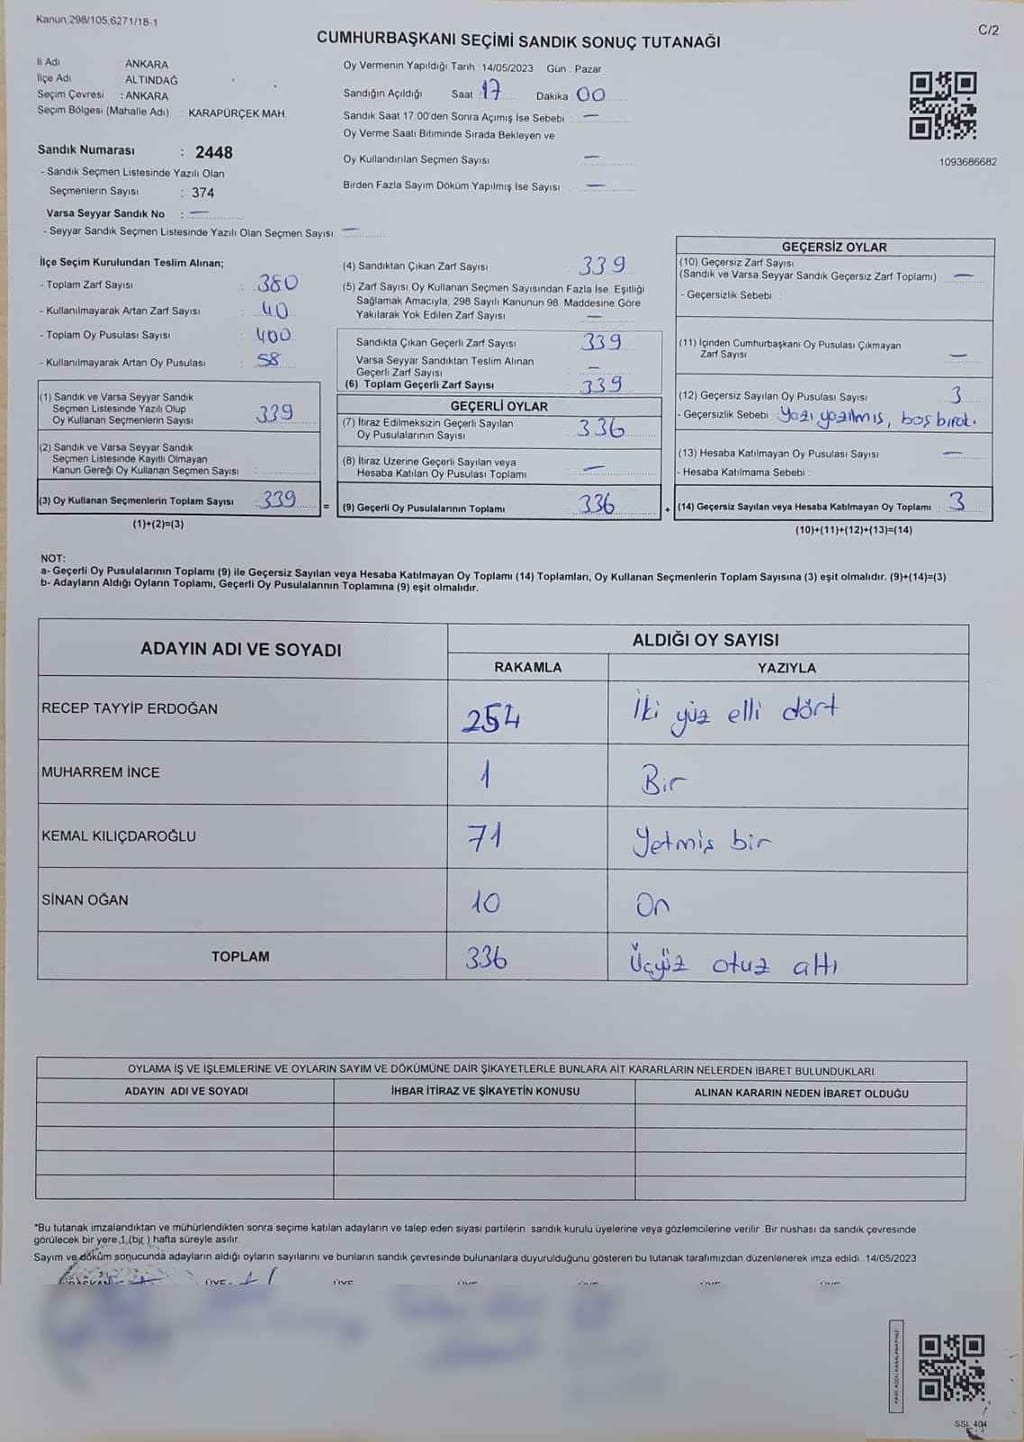 Kanun 298/105,6271/18-1
C/2
CUMHURBAŞKANI SEÇİMİ SANDIK SONUÇ TUTANAĞI
İl Adı ANKARA
İlçe Adı ALTINDAĞ
Seçim Çevresi : ANKARA
Seçim Bölgesi (Mahalle Adı) KARAPÜRÇEK MAH.
Sandık Numarası : 2448
- Sandık Seçmen Listesinde Yazılı Olan
Seçmenlerin Sayısı : 374
Varsa Seyyar Sandık No : —
- Seyyar Sandık Seçmen Listesinde Yazılı Olan Seçmen Sayısı —
Oy Vermenin Yapıldığı Tarih 14/05/2023 Gün Pazar
Sandığın Açıldığı Saat 17 Dakika 00
Sandık Saat 17.00'den Sonra Açımış İse Sebebi —
Oy Verme Saati Bitiminde Sırada Bekleyen ve
Oy Kullandırılan Seçmen Sayısı —
Birden Fazla Sayım Döküm Yapılmış İse Sayısı —
1093686682
İlçe Seçim Kurulundan Teslim Alınan;
- Toplam Zarf Sayısı : 380
- Kullanılmayarak Artan Zarf Sayısı : 40
- Toplam Oy Pusulası Sayısı : 400
- Kullanılmayarak Artan Oy Pusulası : 58
(1) Sandık ve Varsa Seyyar Sandık
Seçmen Listesinde Yazılı Olup
Oy Kullanan Seçmenlerin Sayısı 339
(2) Sandık ve Varsa Seyyar Sandık
Seçmen Listesinde Kayıtlı Olmayan
Kanun Gereği Oy Kullanan Seçmen Sayısı
(3) Oy Kullanan Seçmenlerin Toplam Sayısı 339 =
(1)+(2)=(3)
(4) Sandıktan Çıkan Zarf Sayısı 339
(5) Zarf Sayısı Oy Kullanan Seçmen Sayısından Fazla İse, Eşitliği
Sağlamak Amacıyla, 298 Sayılı Kanunun 98. Maddesine Göre
Yakılarak Yok Edilen Zarf Sayısı —
Sandıkta Çıkan Geçerli Zarf Sayısı 339
Varsa Seyyar Sandıktan Teslim Alınan
Geçerli Zarf Sayısı —
(6) Toplam Geçerli Zarf Sayısı 339
GEÇERLİ OYLAR
(7) İtiraz Edilmeksizin Geçerli Sayılan
Oy Pusulalarının Sayısı 336
(8) İtiraz Üzerine Geçerli Sayılan veya
Hesaba Katılan Oy Pusulası Toplamı —
(9) Geçerli Oy Pusulalarının Toplamı 336 +
GEÇERSİZ OYLAR
(10) Geçersiz Zarf Sayısı
(Sandık ve Varsa Seyyar Sandık Geçersiz Zarf Toplamı) —
- Geçersizlik Sebebi :
(11) İçinden Cumhurbaşkanı Oy Pusulası Çıkmayan
Zarf Sayısı —
(12) Geçersiz Sayılan Oy Pusulası Sayısı 3
- Geçersizlik Sebebi Yazı yazılmış, boş bırak.
(13) Hesaba Katılmayan Oy Pusulası Sayısı —
- Hesaba Katılmama Sebebi :
(14) Geçersiz Sayılan veya Hesaba Katılmayan Oy Toplamı 3
(10)+(11)+(12)+(13)=(14)
NOT:
a- Geçerli Oy Pusulalarının Toplamı (9) ile Geçersiz Sayılan veya Hesaba Katılmayan Oy Toplamı (14) Toplamları, Oy Kullanan Seçmenlerin Toplam Sayısına (3) eşit olmalıdır. (9)+(14)=(3)
b- Adayların Aldığı Oyların Toplamı, Geçerli Oy Pusulalarının Toplamına (9) eşit olmalıdır.
ADAYIN ADI VE SOYADI ALDIĞI OY SAYISI
RAKAMLA YAZIYLA
RECEP TAYYİP ERDOĞAN 254 İki yüz elli dört
MUHARREM İNCE 1 Bir
KEMAL KILIÇDAROĞLU 71 Yetmiş bir
SİNAN OĞAN 10 On
TOPLAM 336 Üçyüz otuz altı
OYLAMA İŞ VE İŞLEMLERİNE VE OYLARIN SAYIM VE DÖKÜMÜNE DAİR ŞİKAYETLERLE BUNLARA AİT KARARLARIN NELERDEN İBARET BULUNDUKLARI
ADAYIN ADI VE SOYADI İHBAR İTİRAZ VE ŞİKAYETİN KONUSU ALINAN KARARIN NEDEN İBARET OLDUĞU
*Bu tutanak imzalandıktan ve mühürlendikten sonra seçime katılan adayların ve talep eden siyasi partilerin sandık kurulu üyelerine veya gözlemcilerine verilir. Bir nüshası da sandık çevresinde
görülecek bir yere 1 (bir) hafta süreyle asılır.
Sayım ve döküm sonucunda adayların aldığı oyların sayılarını ve bunların sandık çevresinde bulunanlara duyurulduğunu gösteren bu tutanak tarafımızdan düzenlenerek imza edildi. 14/05/2023
BAŞKAN ÜYE ÜYE
SSL 404